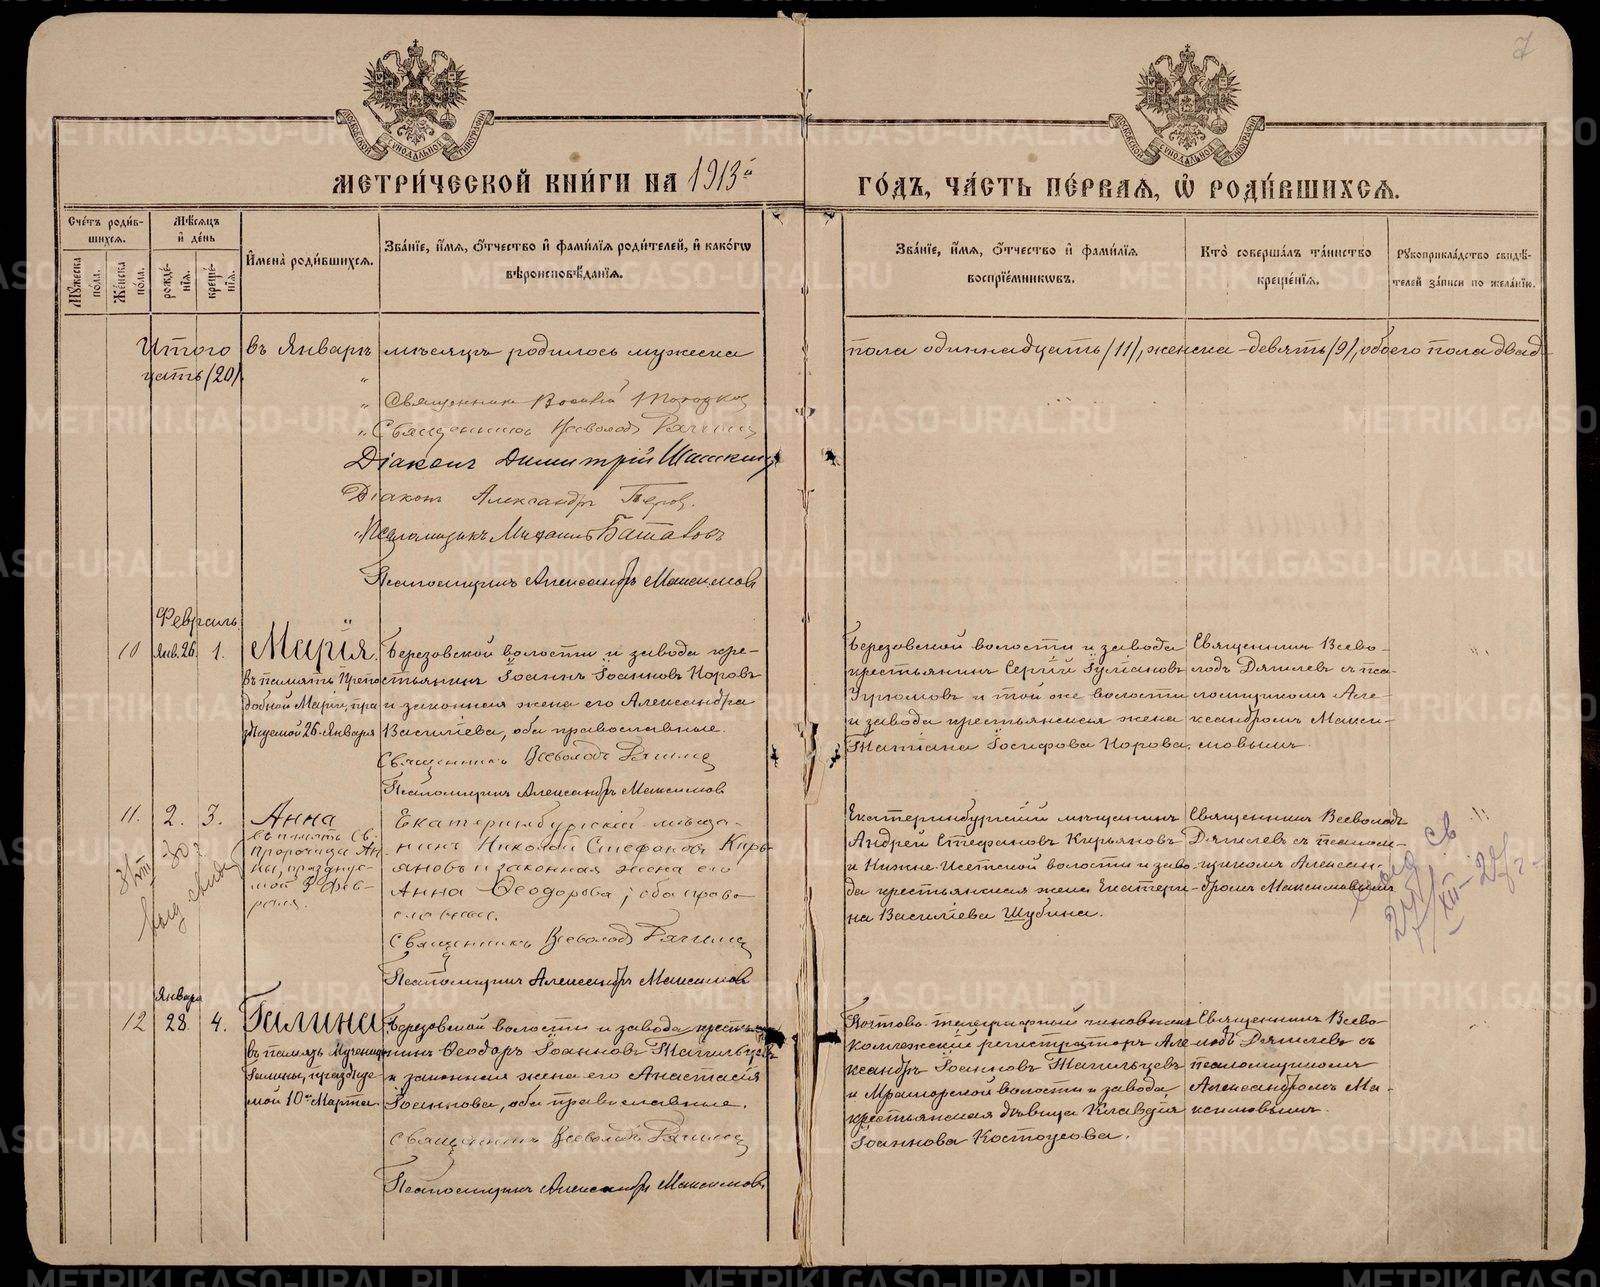 7
МЕТРИ́ЧЕСКОЙ КНИ́ГИ НА 1913й
ГО́ДЪ, ЧА́СТЬ ПЕ́РВАѦ, Ѡ҆ РОДИ́ВШИХСѦ.
Сче́тъ роди́в-
шихсѧ.
Мѣ́сѧцъ
и҆ де́нь
Мꙋ́жеска
по́ла.
Же́нска
по́ла.
рожде́-
нїѧ.
креще́-
нїѧ.
И҆мена̀ роди́вшихсѧ.
Зва́нїе, и҆́мѧ, ѻ҆́тчество и҆ фами́лїѧ роди́телей, и҆ како́гѡ
вѣроисповѣ́данїѧ.
Зва́нїе, и҆́мѧ, ѻ҆́тчество и҆ фами́лїѧ
воспрїе́мникѡвъ.
Кто̀ соверша́лъ та́инство
креще́нїѧ.
Рꙋкоприкла́дство свидѣ́-
телей за́писи по жела́нїю.
Итого въ Январѣ мѣсяцѣ родилось мужеска
пола одиннадцать /11/, женска - девять /9/, обоего пола двад-
цать /20/.
Священникъ
Священникъ Всеволодъ
Діаконъ Димитрій
Діаконъ Александръ
Псаломщикъ Михаилъ
Псаломщикъ Александръ Максимовъ
Февраль
10 Янв. 26. 1. Марія.
въ память Препо-
добной Маріи, пра-
зднуемой 26 Января
Березовской волости и завода кре-
стьянинъ Іоаннъ Іоанновъ Коровъ
и законная жена его Александра
Васильева, оба православные.
Священникъ Всеволодъ
Псаломщикъ Александръ Максимовъ
Березовской волости и завода
крестьянинъ Сергій
и той же волости
и завода крестьянская жена
Татіана Іосифова Корова.
Священникъ Всево-
лодъ Дягилевъ съ пса-
ломщикомъ Але-
ксандромъ Макси-
мовымъ.
11. 2. 3. Анна
въ память Св.
Пророчицы Ан-
ны, праздну-
емой 3 Фев-
раля.
Екатеринбургскій мѣща-
нинъ Николай Стефановъ Кирь-
яновъ и законная жена его
Анна Ѳеодорова; оба право-
славные.
Священникъ Всеволодъ
Псаломщикъ Александръ Максимовъ
Екатеринбургскій мѣщанинъ
Андрей Стефановъ Кирьяновъ
и Нижне-Исетской волости и заво-
да крестьянская жена Екатери-
на Васильева Шубина.
Священникъ Всеволодъ
Дягилевъ съ псалом-
щикомъ Алексан-
дромъ Максимовымъ.
Января
12 28 4. Галина
въ память Мученицы
Галины, празднуе-
мой 10го Марта.
Березовской волости и завода крестья-
нинъ Ѳеодоръ Іоанновъ Тагильцевъ
и законная жена его Анастасія
Іоаннова, оба православные.
Священникъ Всеволодъ
Псаломщикъ Александръ Максимовъ
Почтово-телеграфный чиновникъ
коллежскій регистраторъ Але-
ксандръ Іоанновъ Тагильцевъ
и Мраморской волости и завода
крестьянская дѣвица Клавдія
Іоаннова Костоусова.
Священникъ Всево-
лодъ Дягилевъ съ
псаломщикомъ
Александромъ Ма-
ксимовымъ.
METRIKI.GASO-URAL.RU